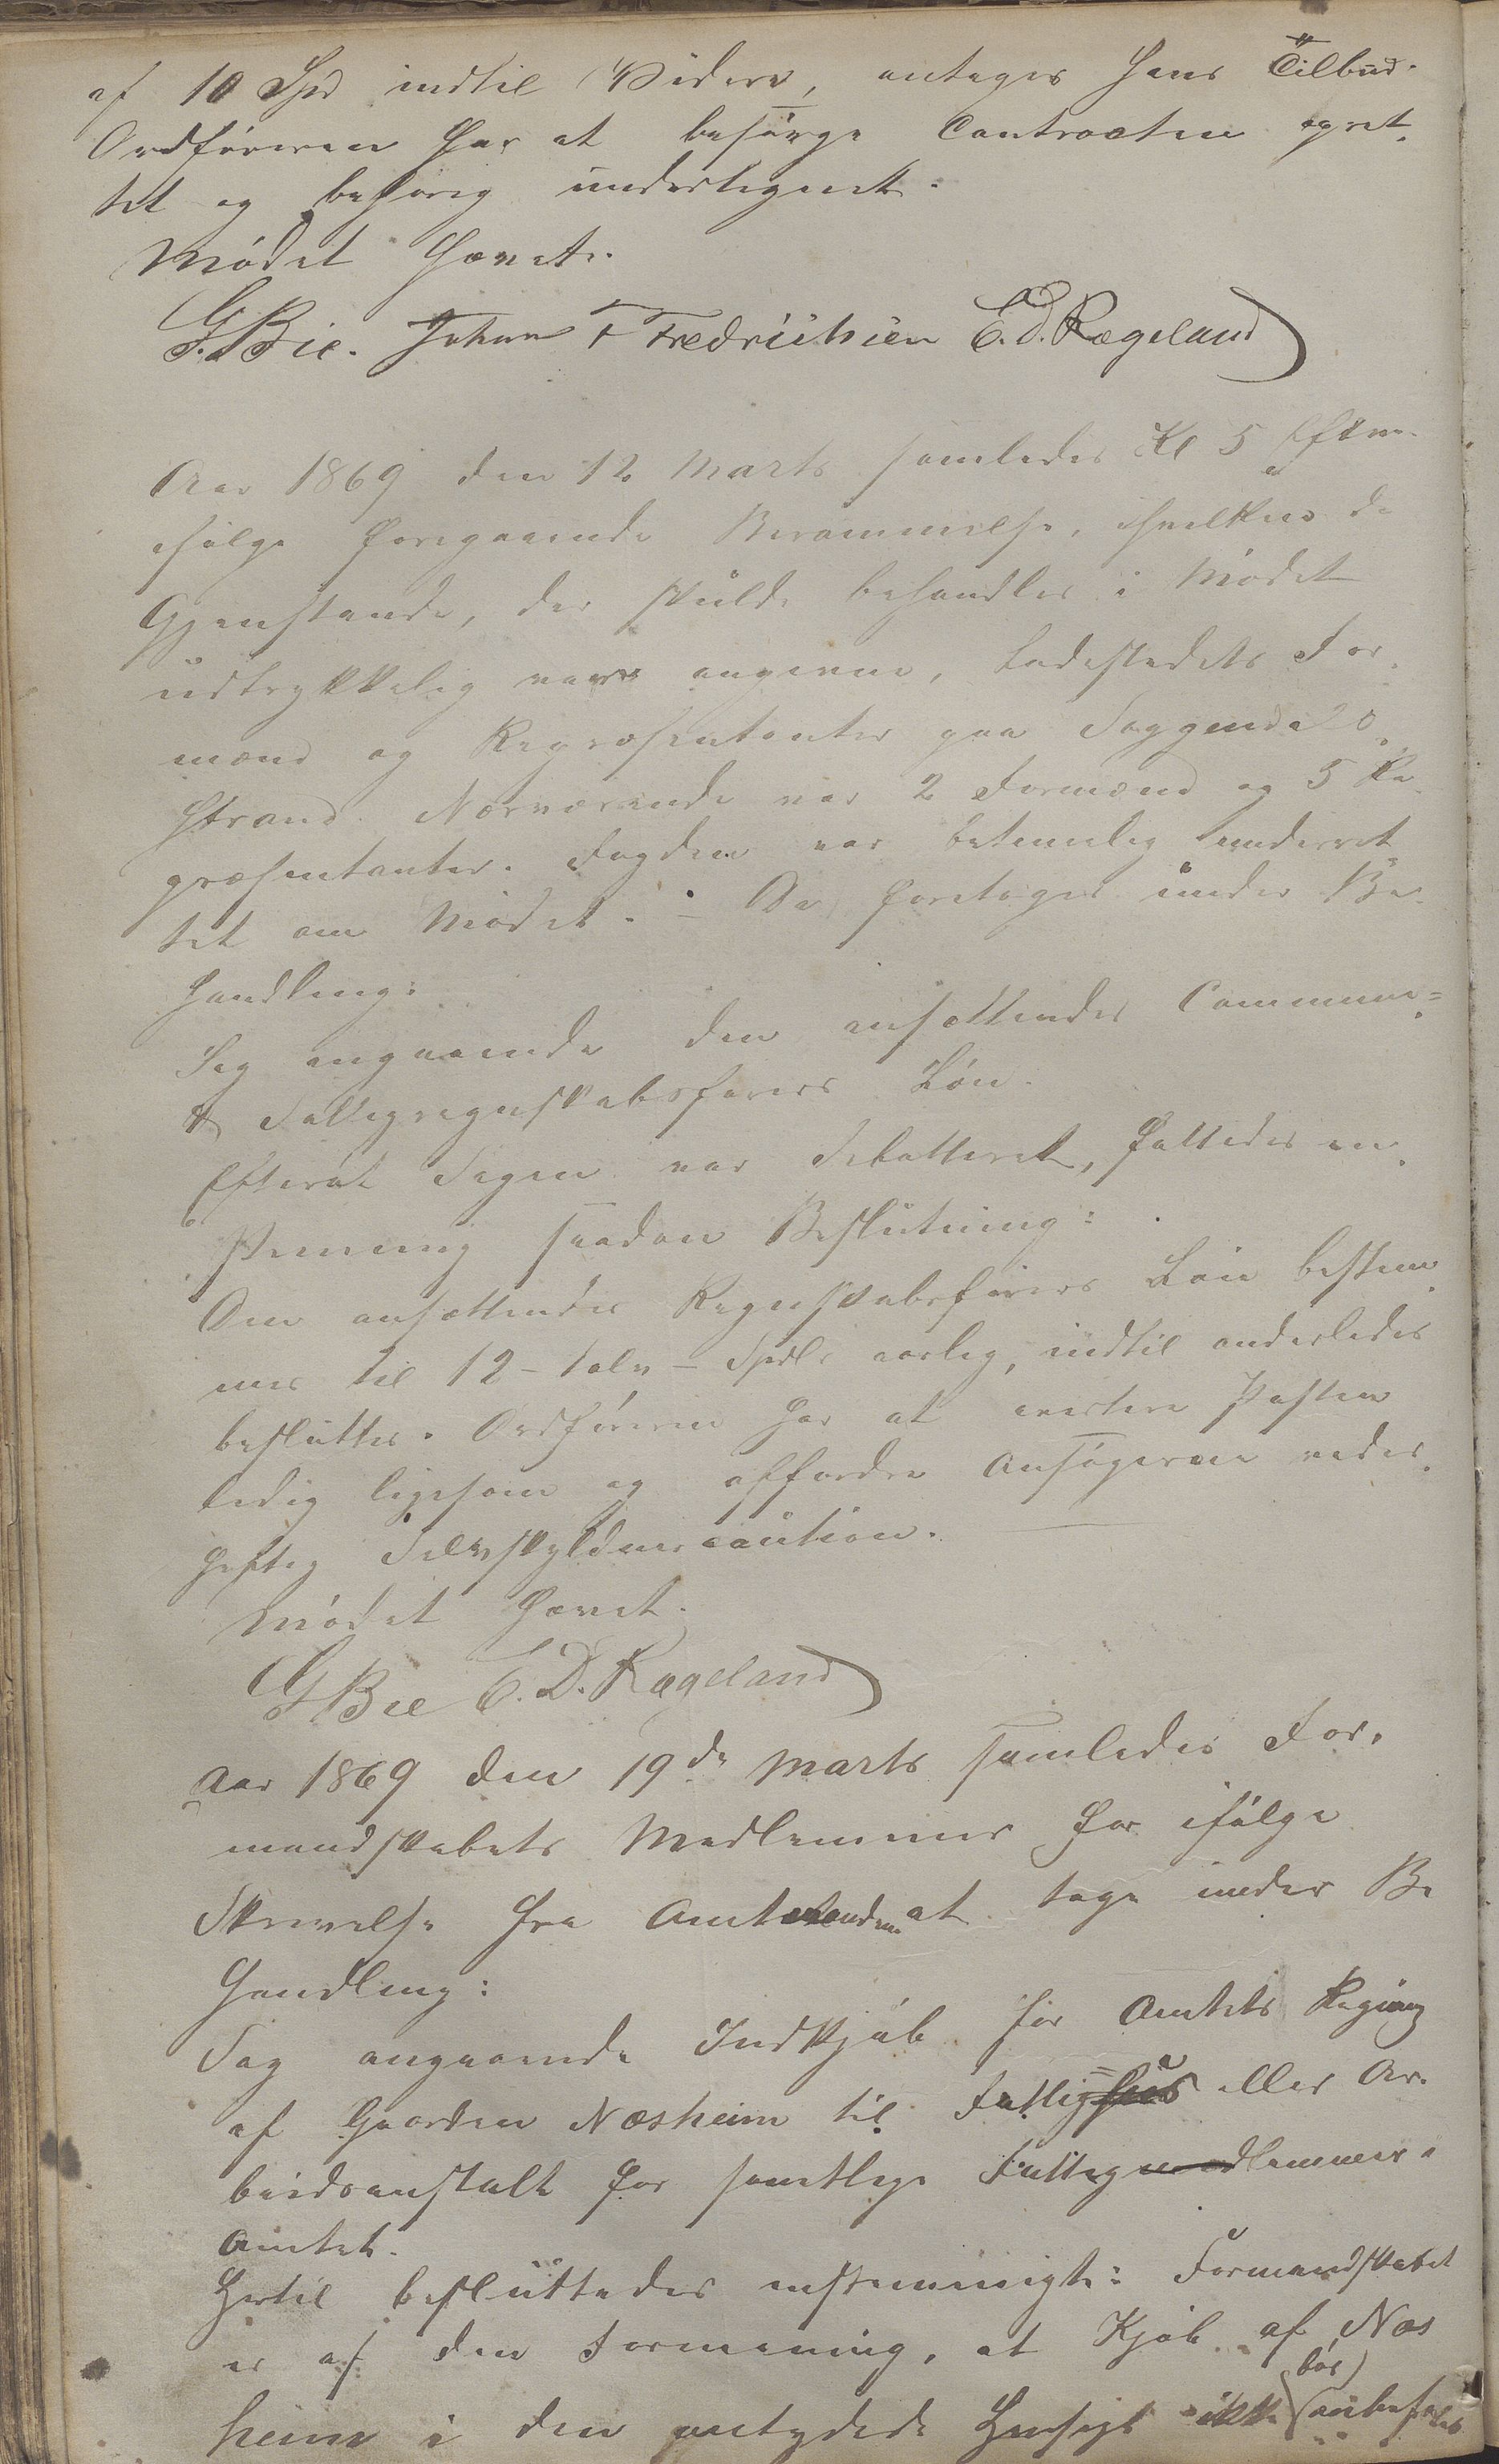 af 10 Spd indtil Videre, antages hans Tilbud.
Ordføreren har at besørge Contracten opret-
tet og behørig undertegnet.
Mødet hævet.
G. Bie. Johan F Fredrichsen E. d. Rægeland
Aar 1869 den 12 Marts samledes Kl 5 Efterm.
ifølge foregaaende Berammelse, i hvilken de
Gjenstande, der skulde behandles i Mødet
udtrykkelig vare angivne, Ladestedets For-
mænd og Repræsentanter paa Soggendals-
strand. Nærværende var 2 Formænd og 5 Re-
præsentanter. Fogden var betimelig underret-
tet om Mødet. – Da foretoges under Be-
handling:
Sag angaaende den ansættendes Commune-
& Fattigregnskabsførers Løn.
Efterat Sagen var debatteret, fattedes en-
stemmig saadan Beslutning:
Den ansættendes Regnskabsførers Løn bestem-
mes til 12 – tolv – Spdlr aarlig, indtil anderledes
besluttes. Ordføreren har at avertere Posten
ledig ligesom og affordre Ansøgerne veder-
heftig Selvskyldnercaution.
Mødet hævet.
G Bie E. D. Rægeland
Aar 1869 den 19de Marts samledes For-
mandskabets Medlemmer for ifølge
Skrivelse fra Amtmanden at tage under Be
handling:
Sag angaaende Indkjøb for Amtets Regning
af Gaarden Næsheim til Fattighus eller Ar-
beidsanstalt for samtlige Fattiglemmer i
Amtet.
Hertil besluttedes enstemmigt: Formandskabet
er af den Formening, at Kjøb af Næs
heim i den antydede Hensigt ikke (bør) anbefales